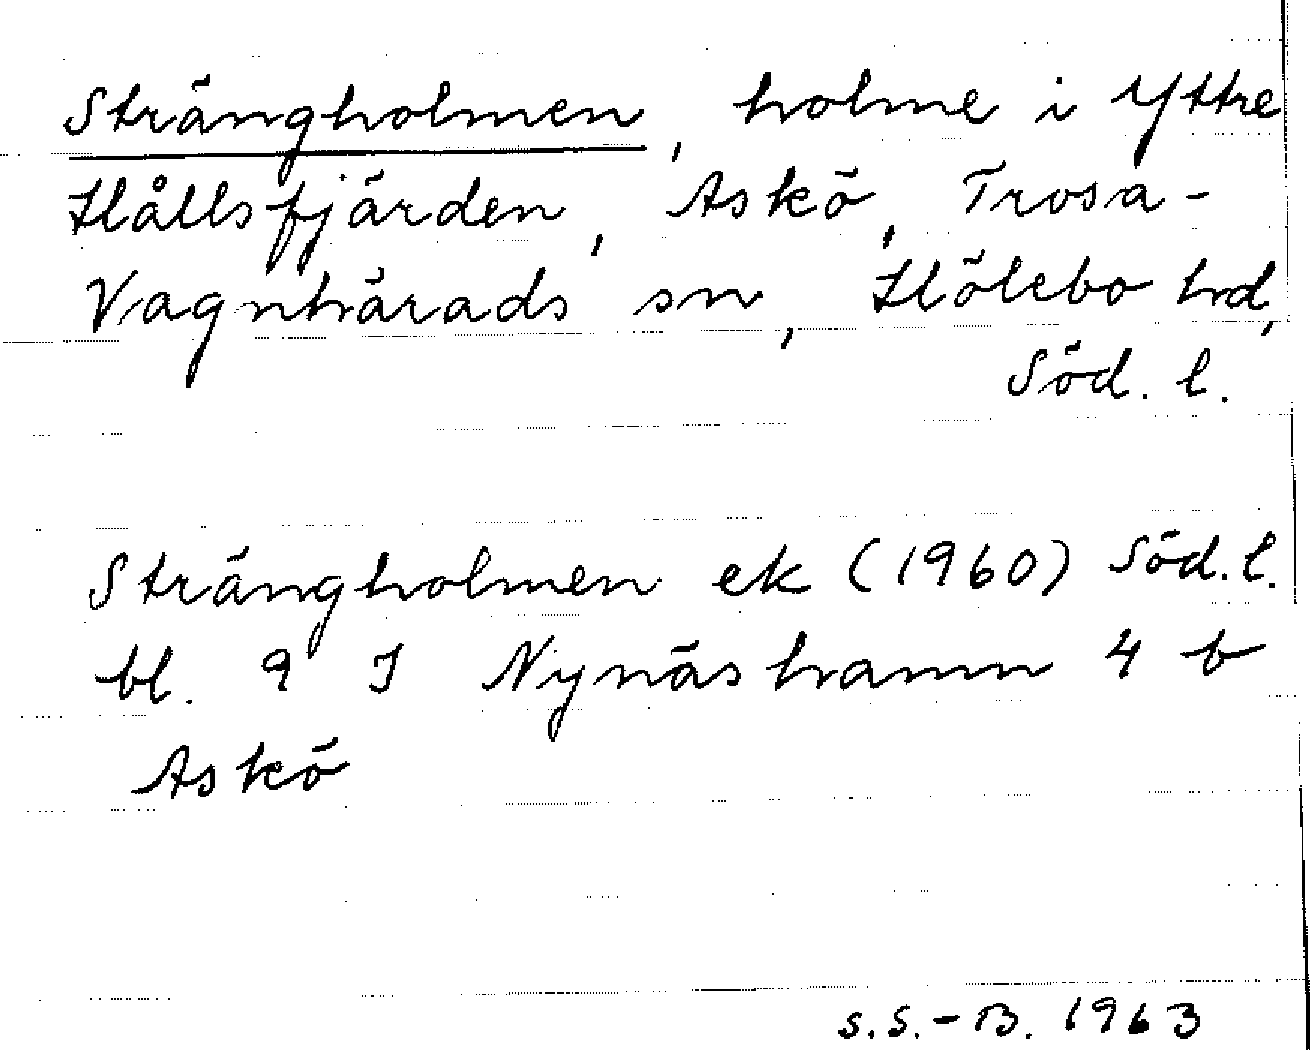 Strängholmen, holme i Yttre
Hållsfjärden, Askö, Trosa-
Vagnhärads sn, Hölebo hd,
Söd. l.
Strängholmen ek (1960) Söd. l.
bl. 9 I Nynäshamn 4 b
Askö
S.S.-B. 1963